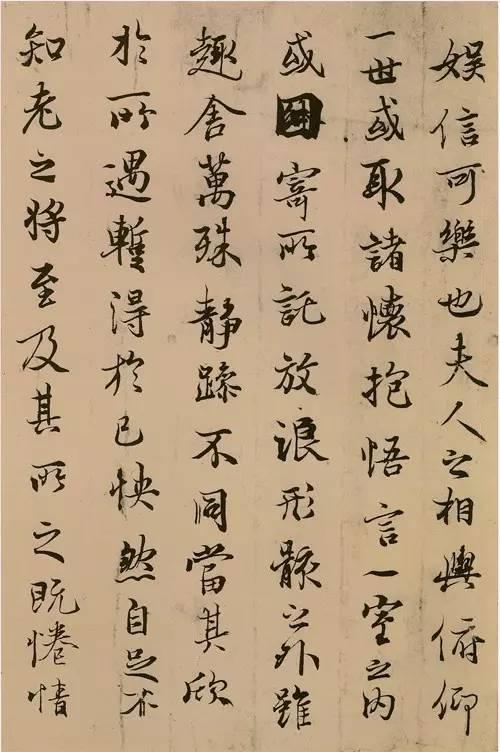 娛信可樂也夫人之相與俯仰
一世或取諸懷抱悟言一室之内
或因寄所託放浪形骸之外雖
趣舍萬殊静躁不同當其欣
於所遇蹔得於己怏然自足不
知老之將至及其所之既惓情